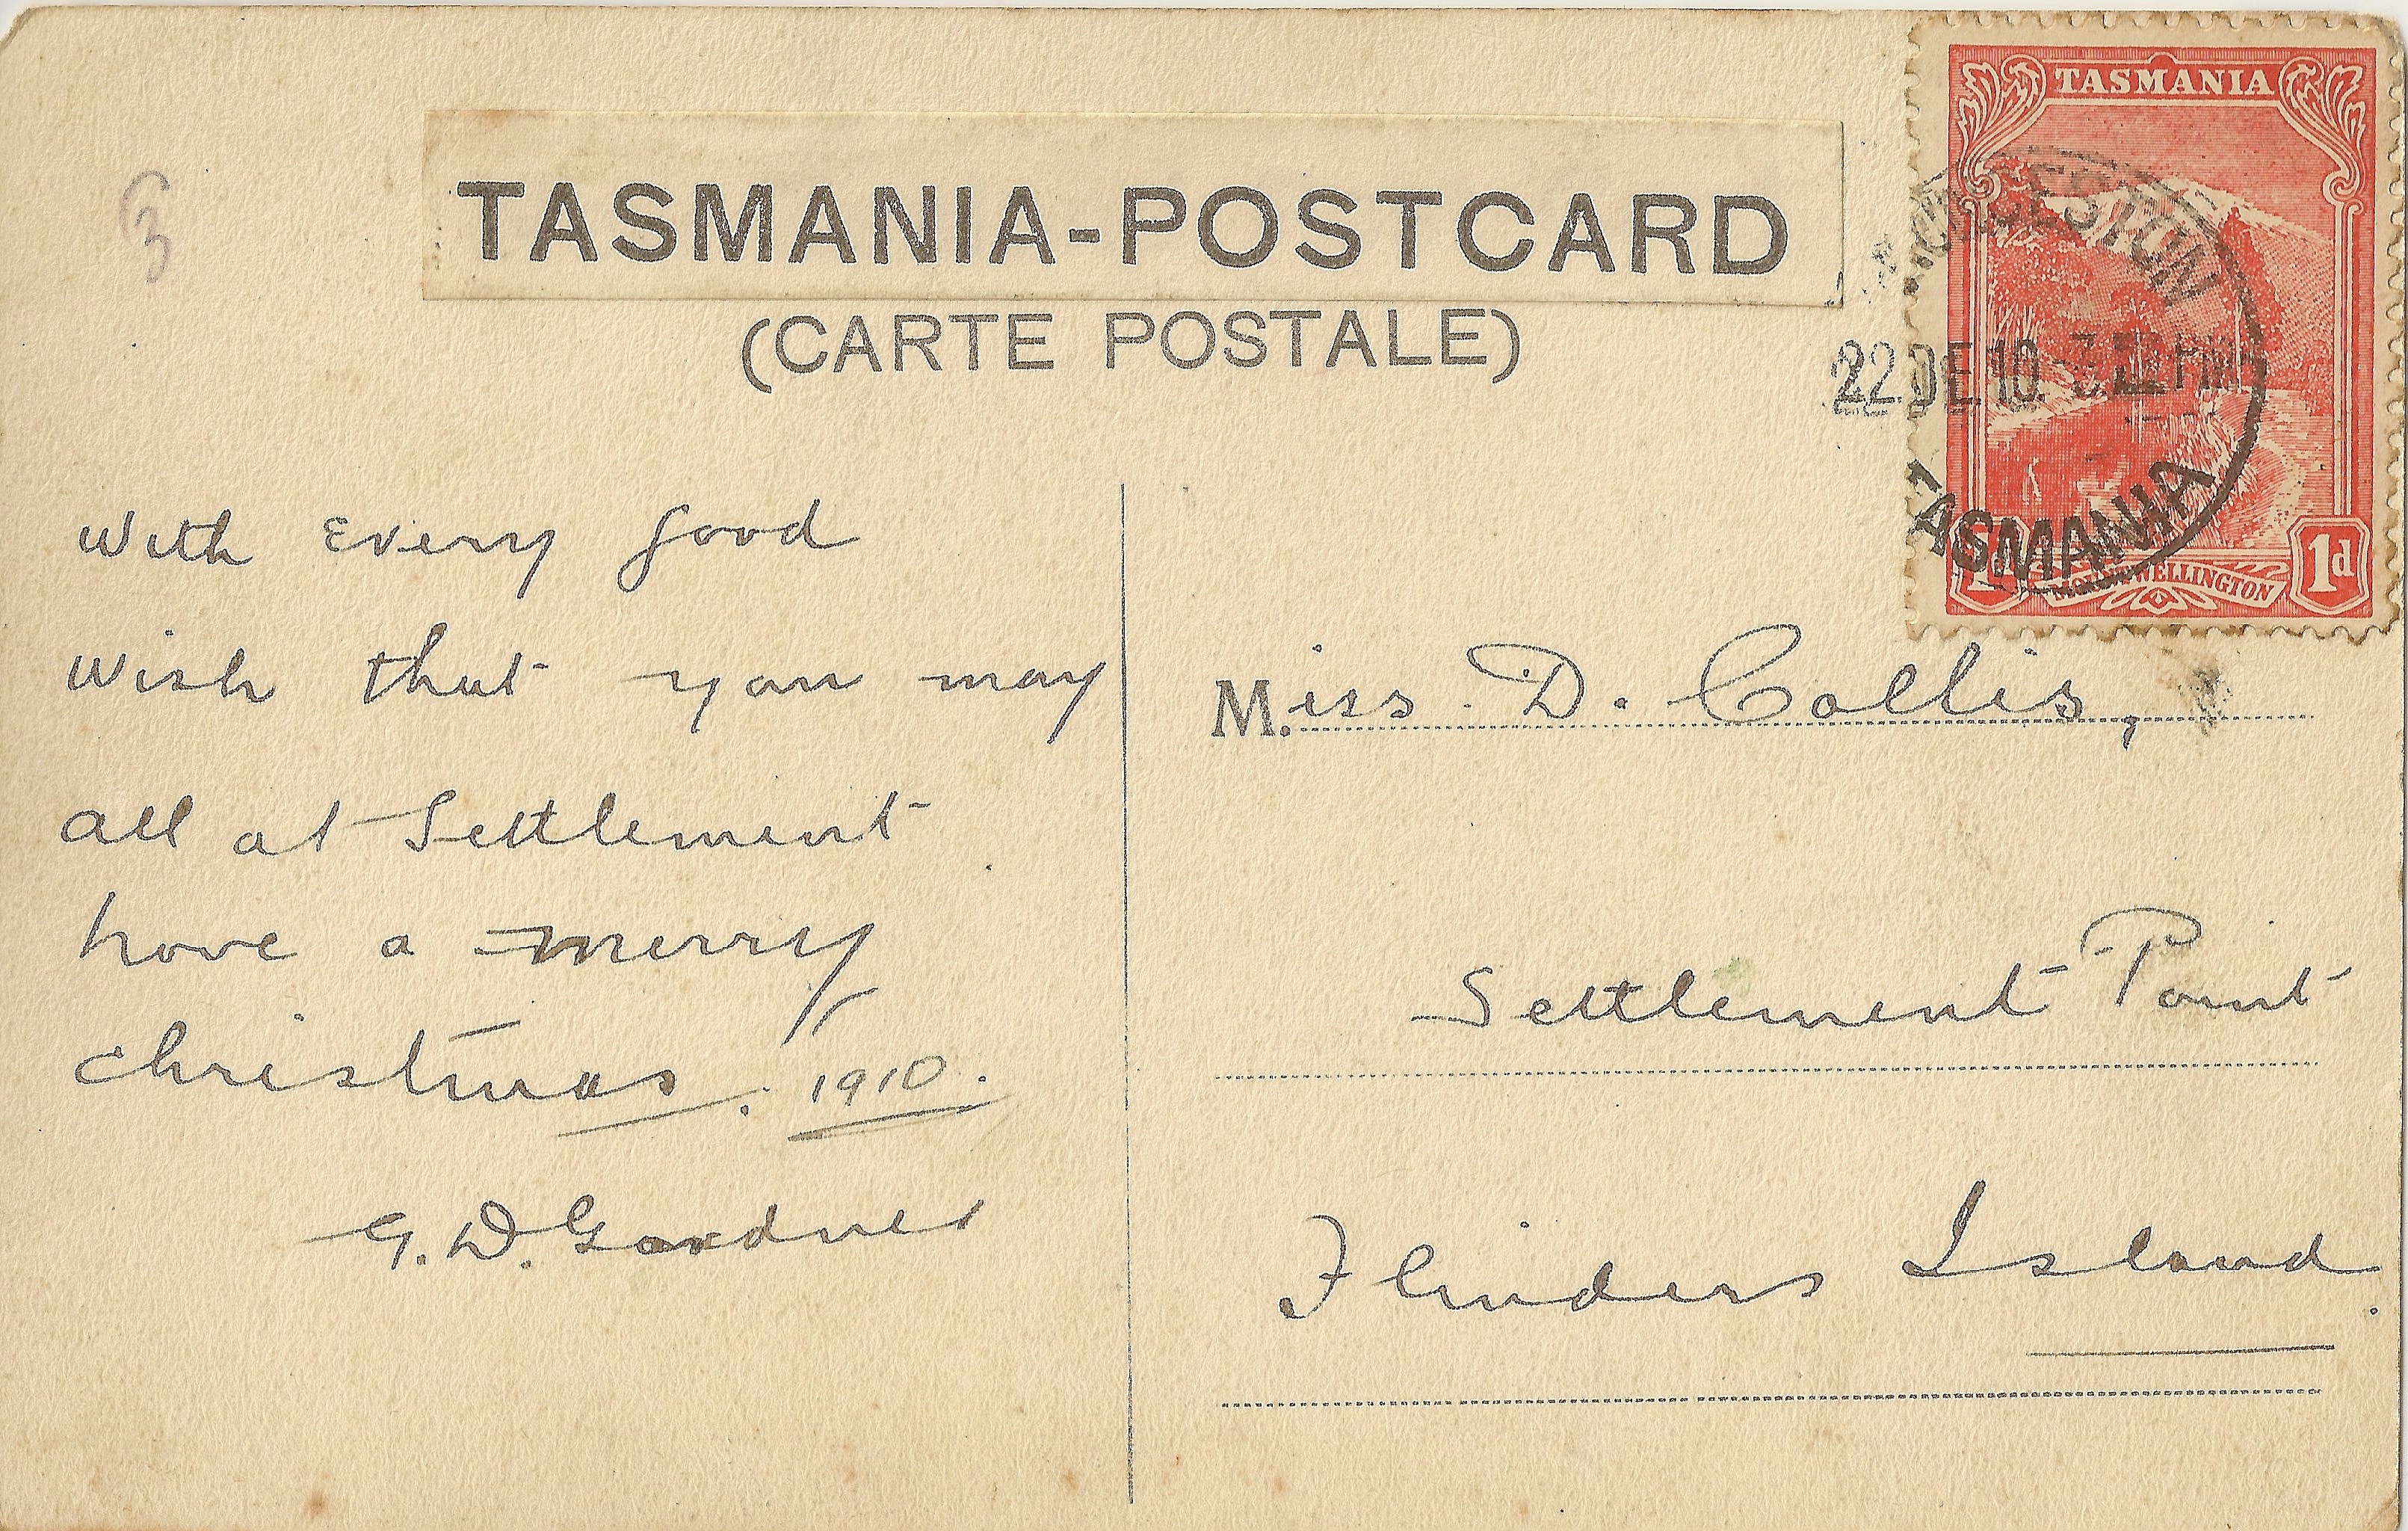 TASMANIA-POSTCARD
(CARTE POSTALE)
3
TASMANIA
22 DE 10
TASMANIA
MOUNT WELLINGTON
1d
With Every good
wish that you may
all at Settlement
have a merry
christmas. 1910.
G. D. Gardner
Miss. D. Collis,
Settlement Point
Flinders Island.